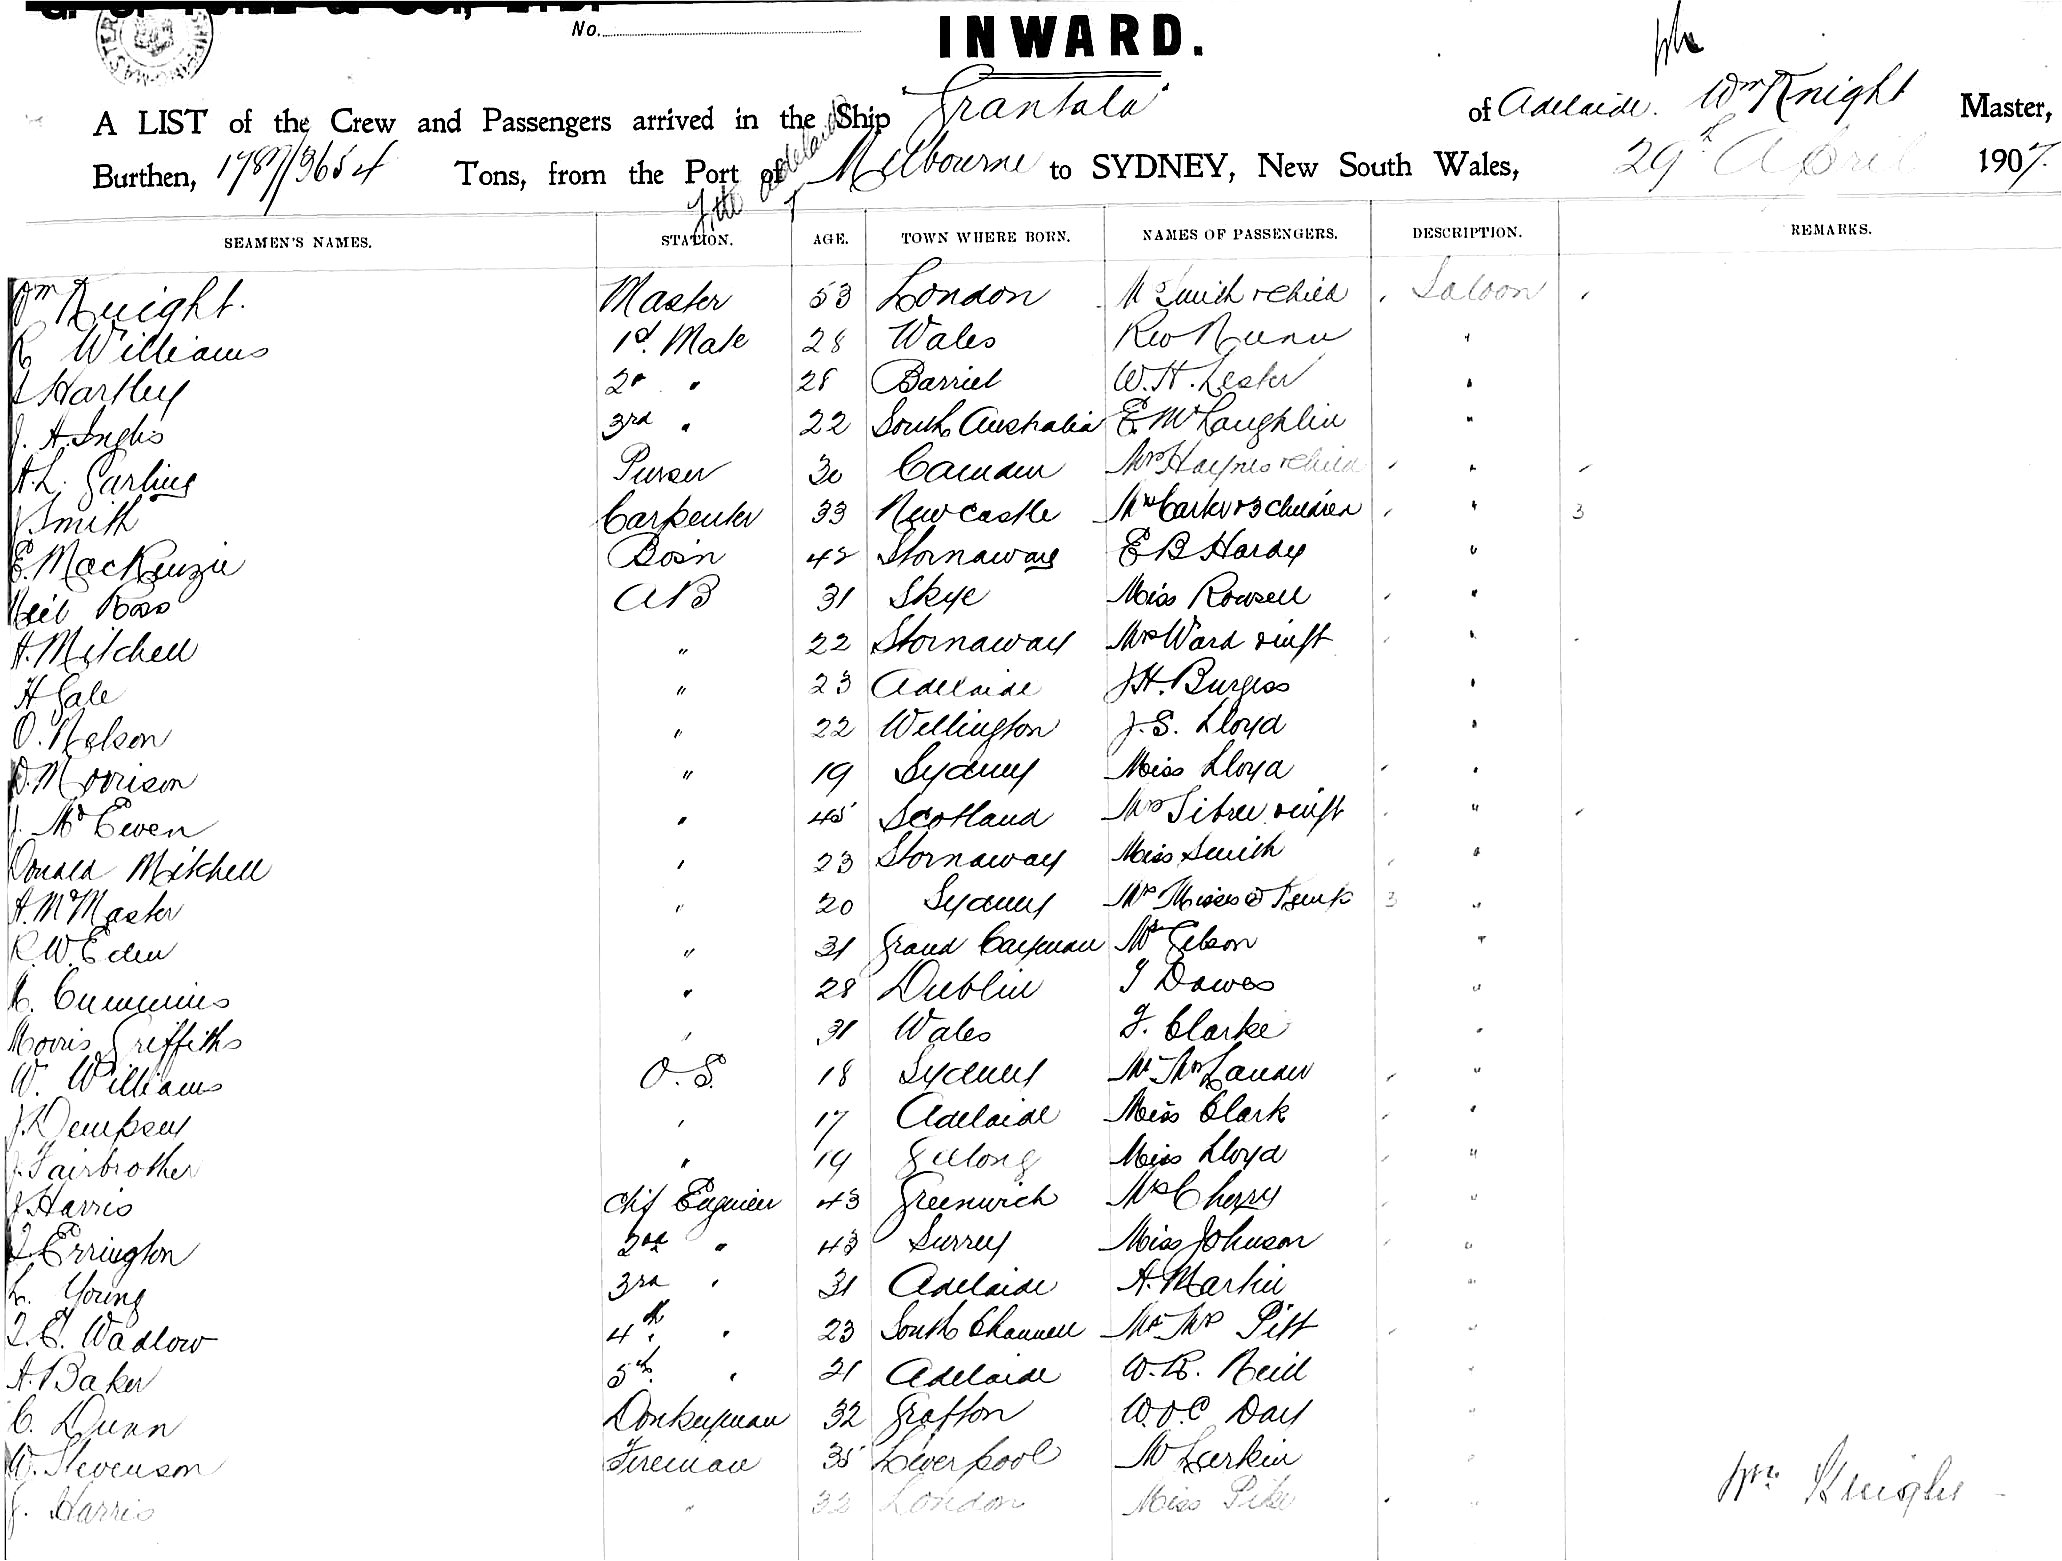 No.
INWARD.
A LIST of the Crew and Passengers arrived in the Ship "Grantala" of Adelaide. Wm Knight Master,
Burthen, 1787/3654 Tons, from the Port of Melbourne to SYDNEY, New South Wales, 29th April 1907.
SEAMEN'S NAMES. STATION. AGE. TOWN WHERE BORN. NAMES OF PASSENGERS. DESCRIPTION. REMARKS.
Wm Knight. Master 53 London Smith & child Saloon
R Williams 1st. Mate 28 Wales Rev Nunn "
Hartley 2nd " 28 W. H. Lester "
J. A. Inglis 3rd " 22 South Australia E. McLaughlin "
A. L. Garling Purser 30 Camden Mrs Haynes & child "
J Smith Carpenter 33 Newcastle Mrs Carter & 3 children " 3
E. MacKenzie Bosn 42 Stornaway E B Hardy "
Neil Ross AB 31 Skye Miss Rowsell "
A. Mitchell " 22 Stornaway Mrs Ward & inft "
H Gale " 23 Adelaide J H. Burgess "
O. Nelson " 22 Wellington J. S. Lloyd "
D. Morrison " 19 Sydney Miss Lloyd "
J. McEwen " 45 Scotland Mrs Sibree & inft "
Donald Mitchell " 23 Stornaway Miss Smith "
A. McMaster " 20 Sydney Misses 3 "
R. W. Eden " 31 Grand Cayman Gibson "
Cummins " 28 Dublin Dawes "
Morris Griffiths " 31 Wales Clarke "
W. Williams O. S. 18 Sydney Mr Mrs Lauder "
J. Dempsey " 17 Adelaide Miss Clark "
J. Fairbrother " 19 Geelong Miss Lloyd "
J. Harris Chif Engineer 43 Greenwich Cherry "
Errington 2nd " 43 Surrey Miss Johnson "
L. Young 3rd " 31 Adelaide A. Martin "
Wadlow 4th. " 23 South Channell Mr Mrs Pitt "
A. Baker 5th. " 21 Adelaide W. R. Neill "
C. Dunn Donkeyman 32 Grafton Day "
W. Stevenson Fireman 35 Liverpool M Larkin "
J. Harris " 32 London Miss Pike "
Wm Knight